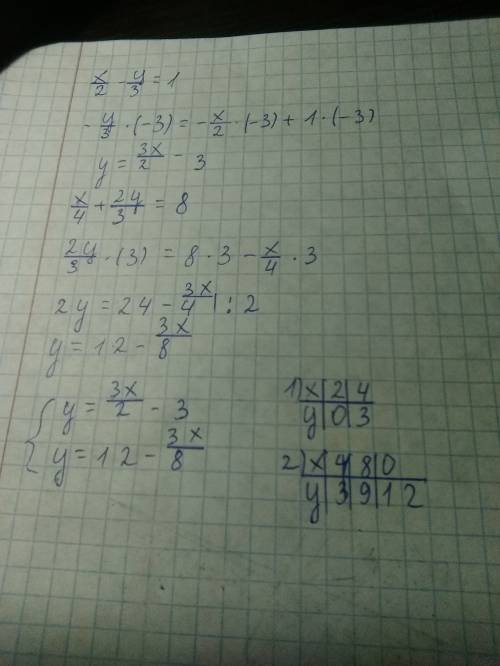 x/2 - y/3 = 1
- y/3 · (-3) = - x/2 · (-3) + 1 · (-3)
y = 3x/2 - 3
x/4 + 2y/3 = 8
2y/3 · (3) = 8 · 3 - x/4 · 3
2y = 24 - 3x/4 | : 2
y = 12 - 3x/8
{ y = 3x/2 - 3
y = 12 - 3x/8
1) x | 2 | 4
y | 0 | 3
2) x | 4 | 8 | 0
y | 3 | 9 | 12